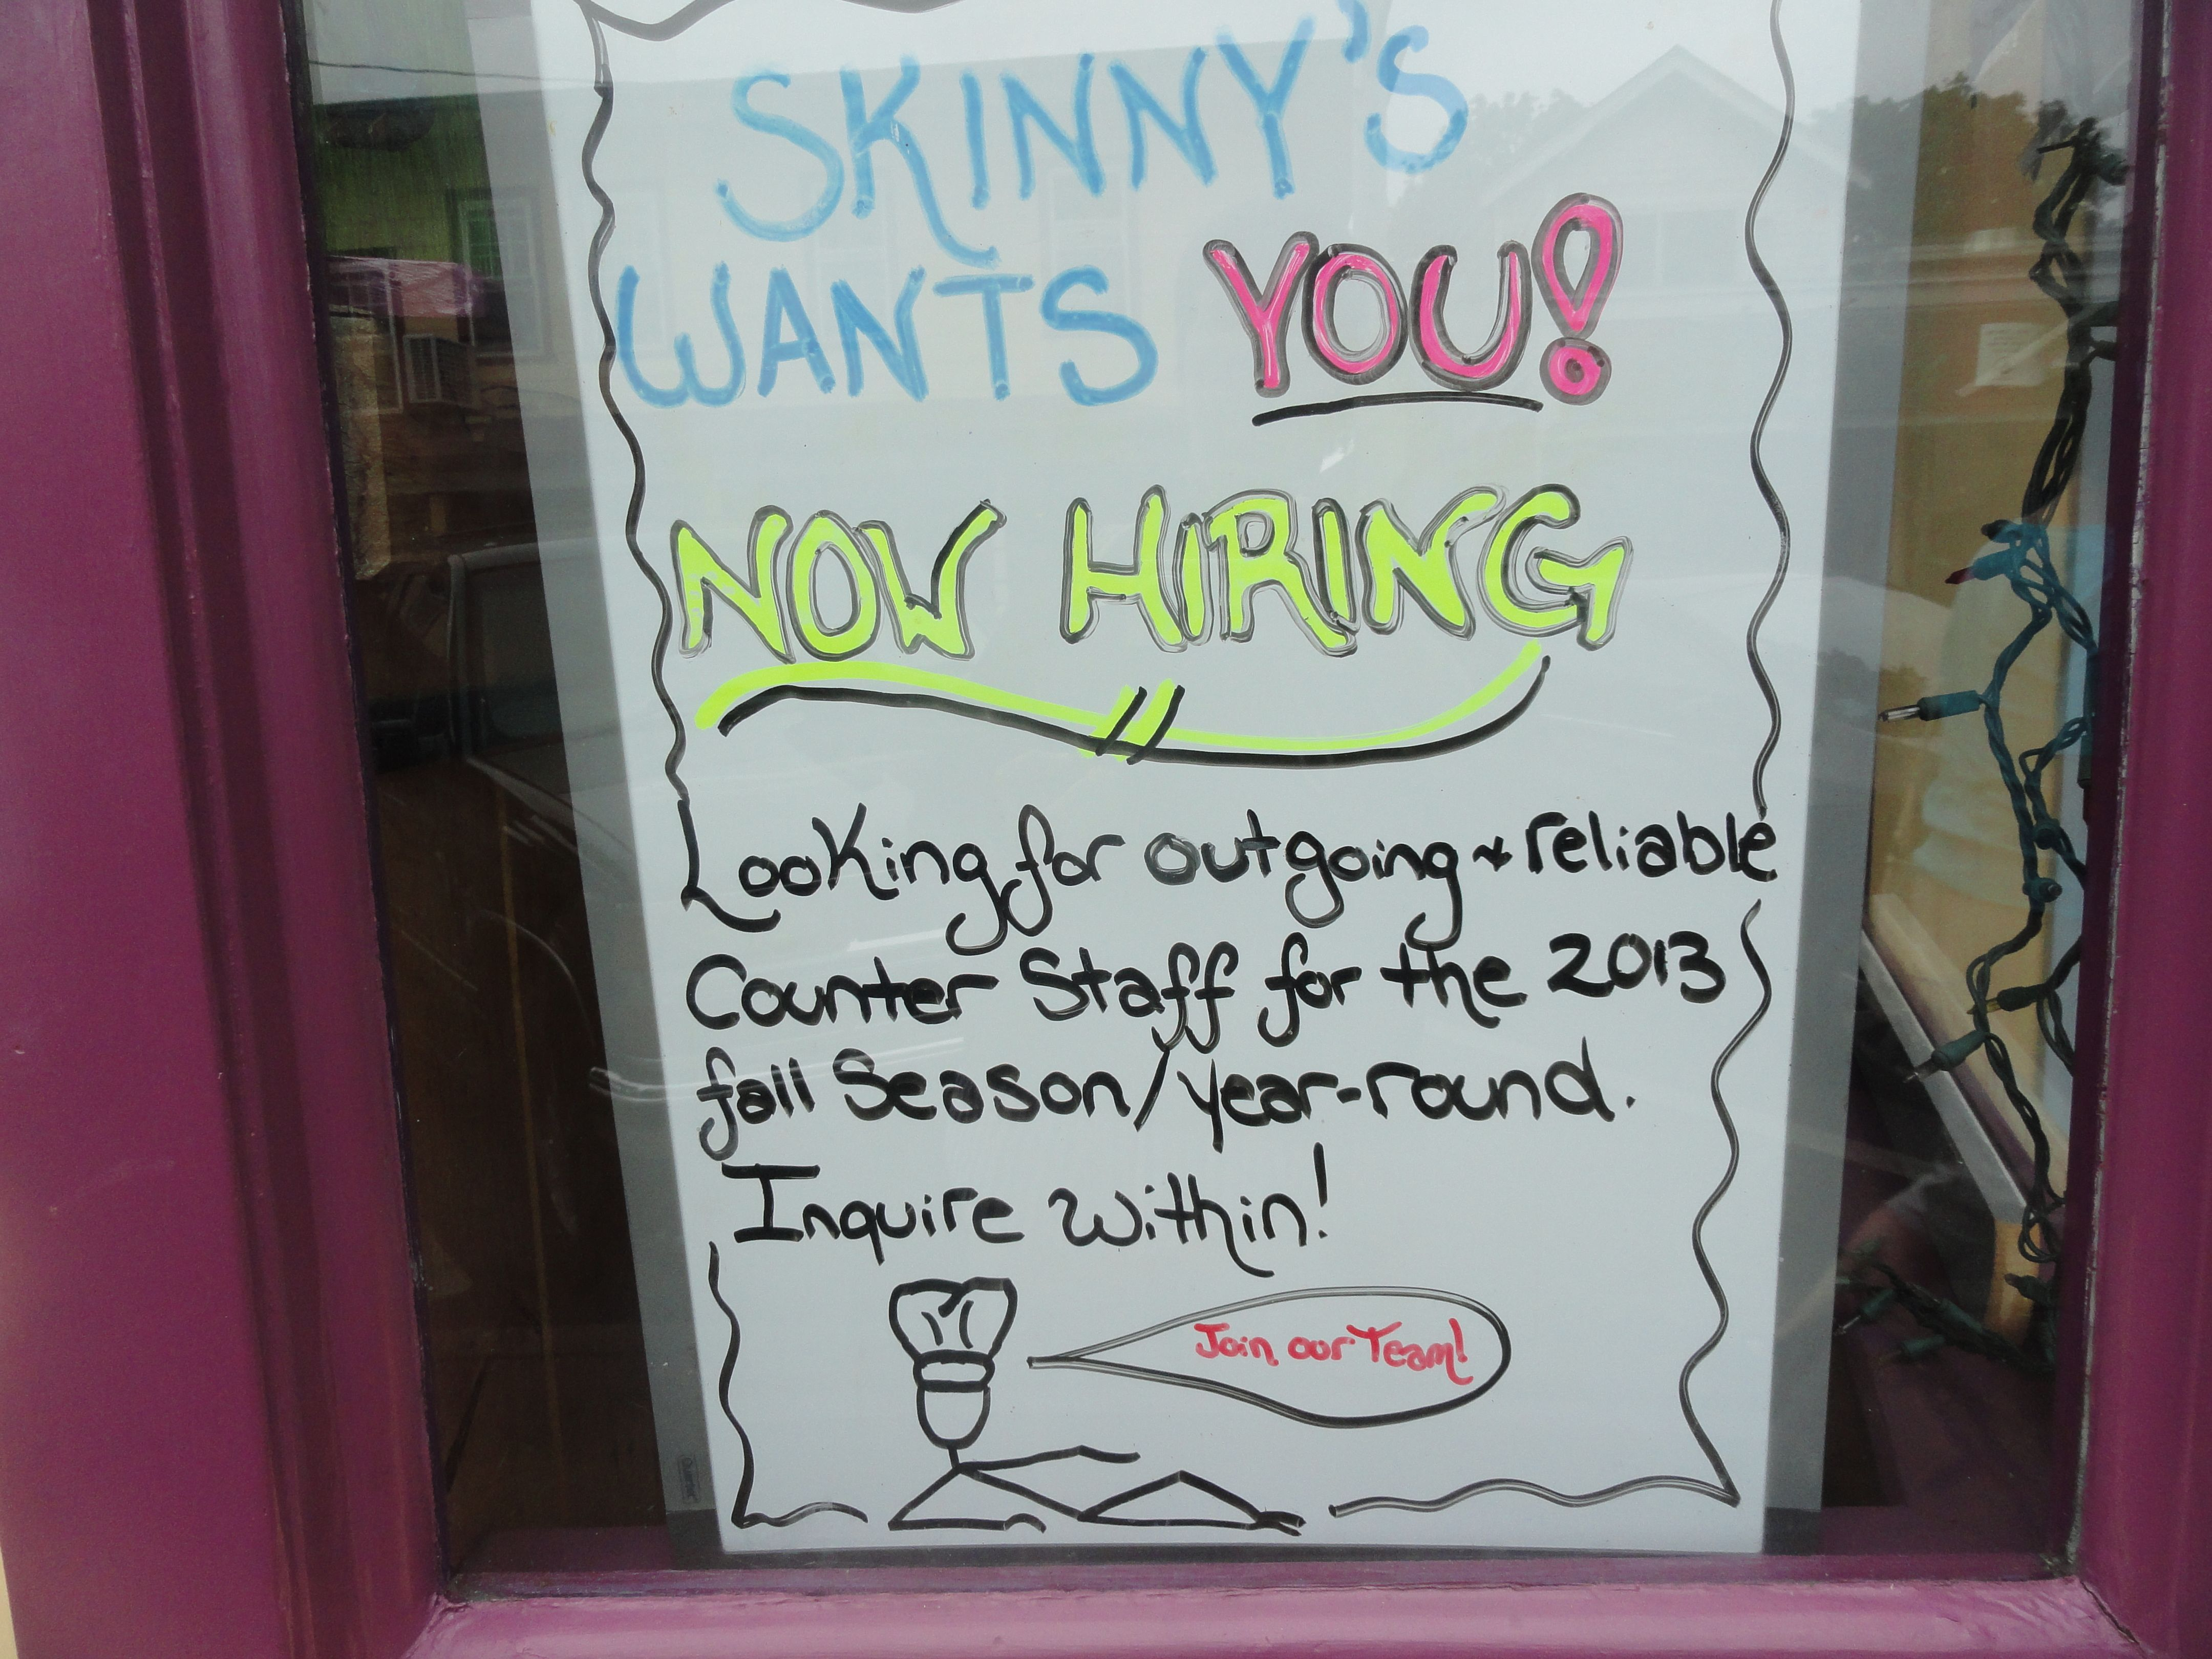 SKINNY'S
WANTS YOU!
NOW HIRING
Looking for outgoing + reliable
Counter Staff for the 2013
fall Season/year-round.
Inquire within!
Join our Team!
Quartet